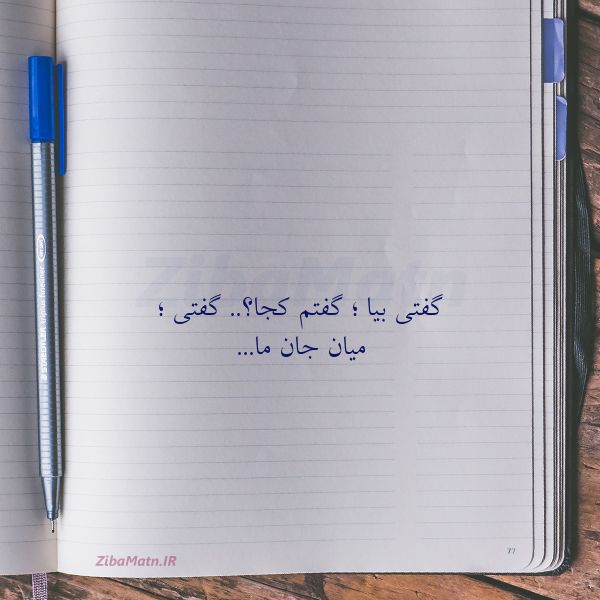 گفتی بیا ؛ گفتم کجا؟.. گفتی ؛
میان جان ما...
ZibaMatn
77
ZibaMatn.IR